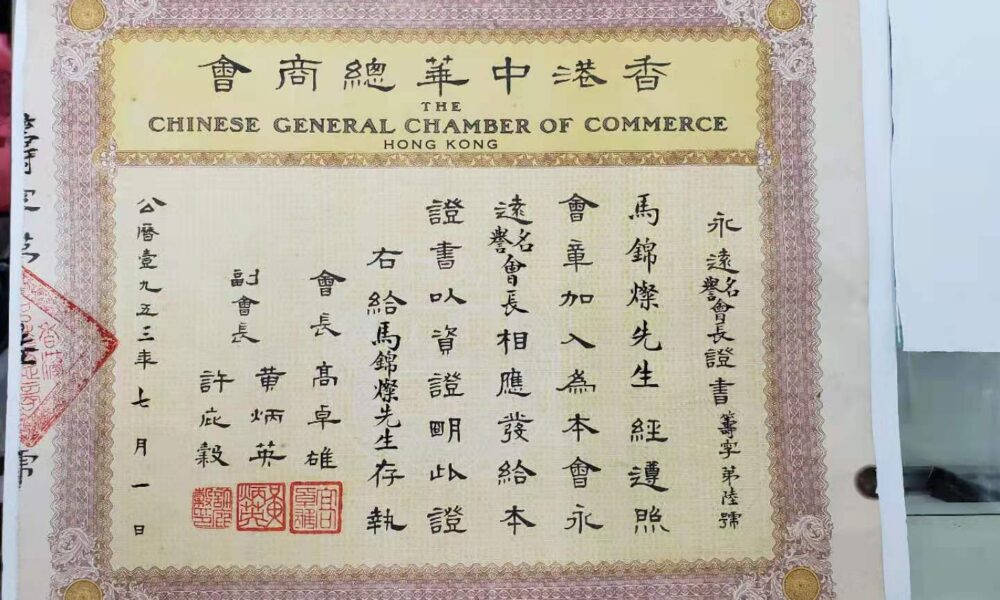 香港中華總商會
THE
CHINESE GENERAL CHAMBER OF COMMERCE
HONG KONG
永遠名譽會長證書籌字弟陸號
馬錦燦先生經遵照
會章加入為本會永
遠名譽會長相應發給本
證書以資證明此證
右給馬錦燦先生存執
會長高卓雄
副會長
黄炳英
許庇穀
公曆壹九五三年七月一日